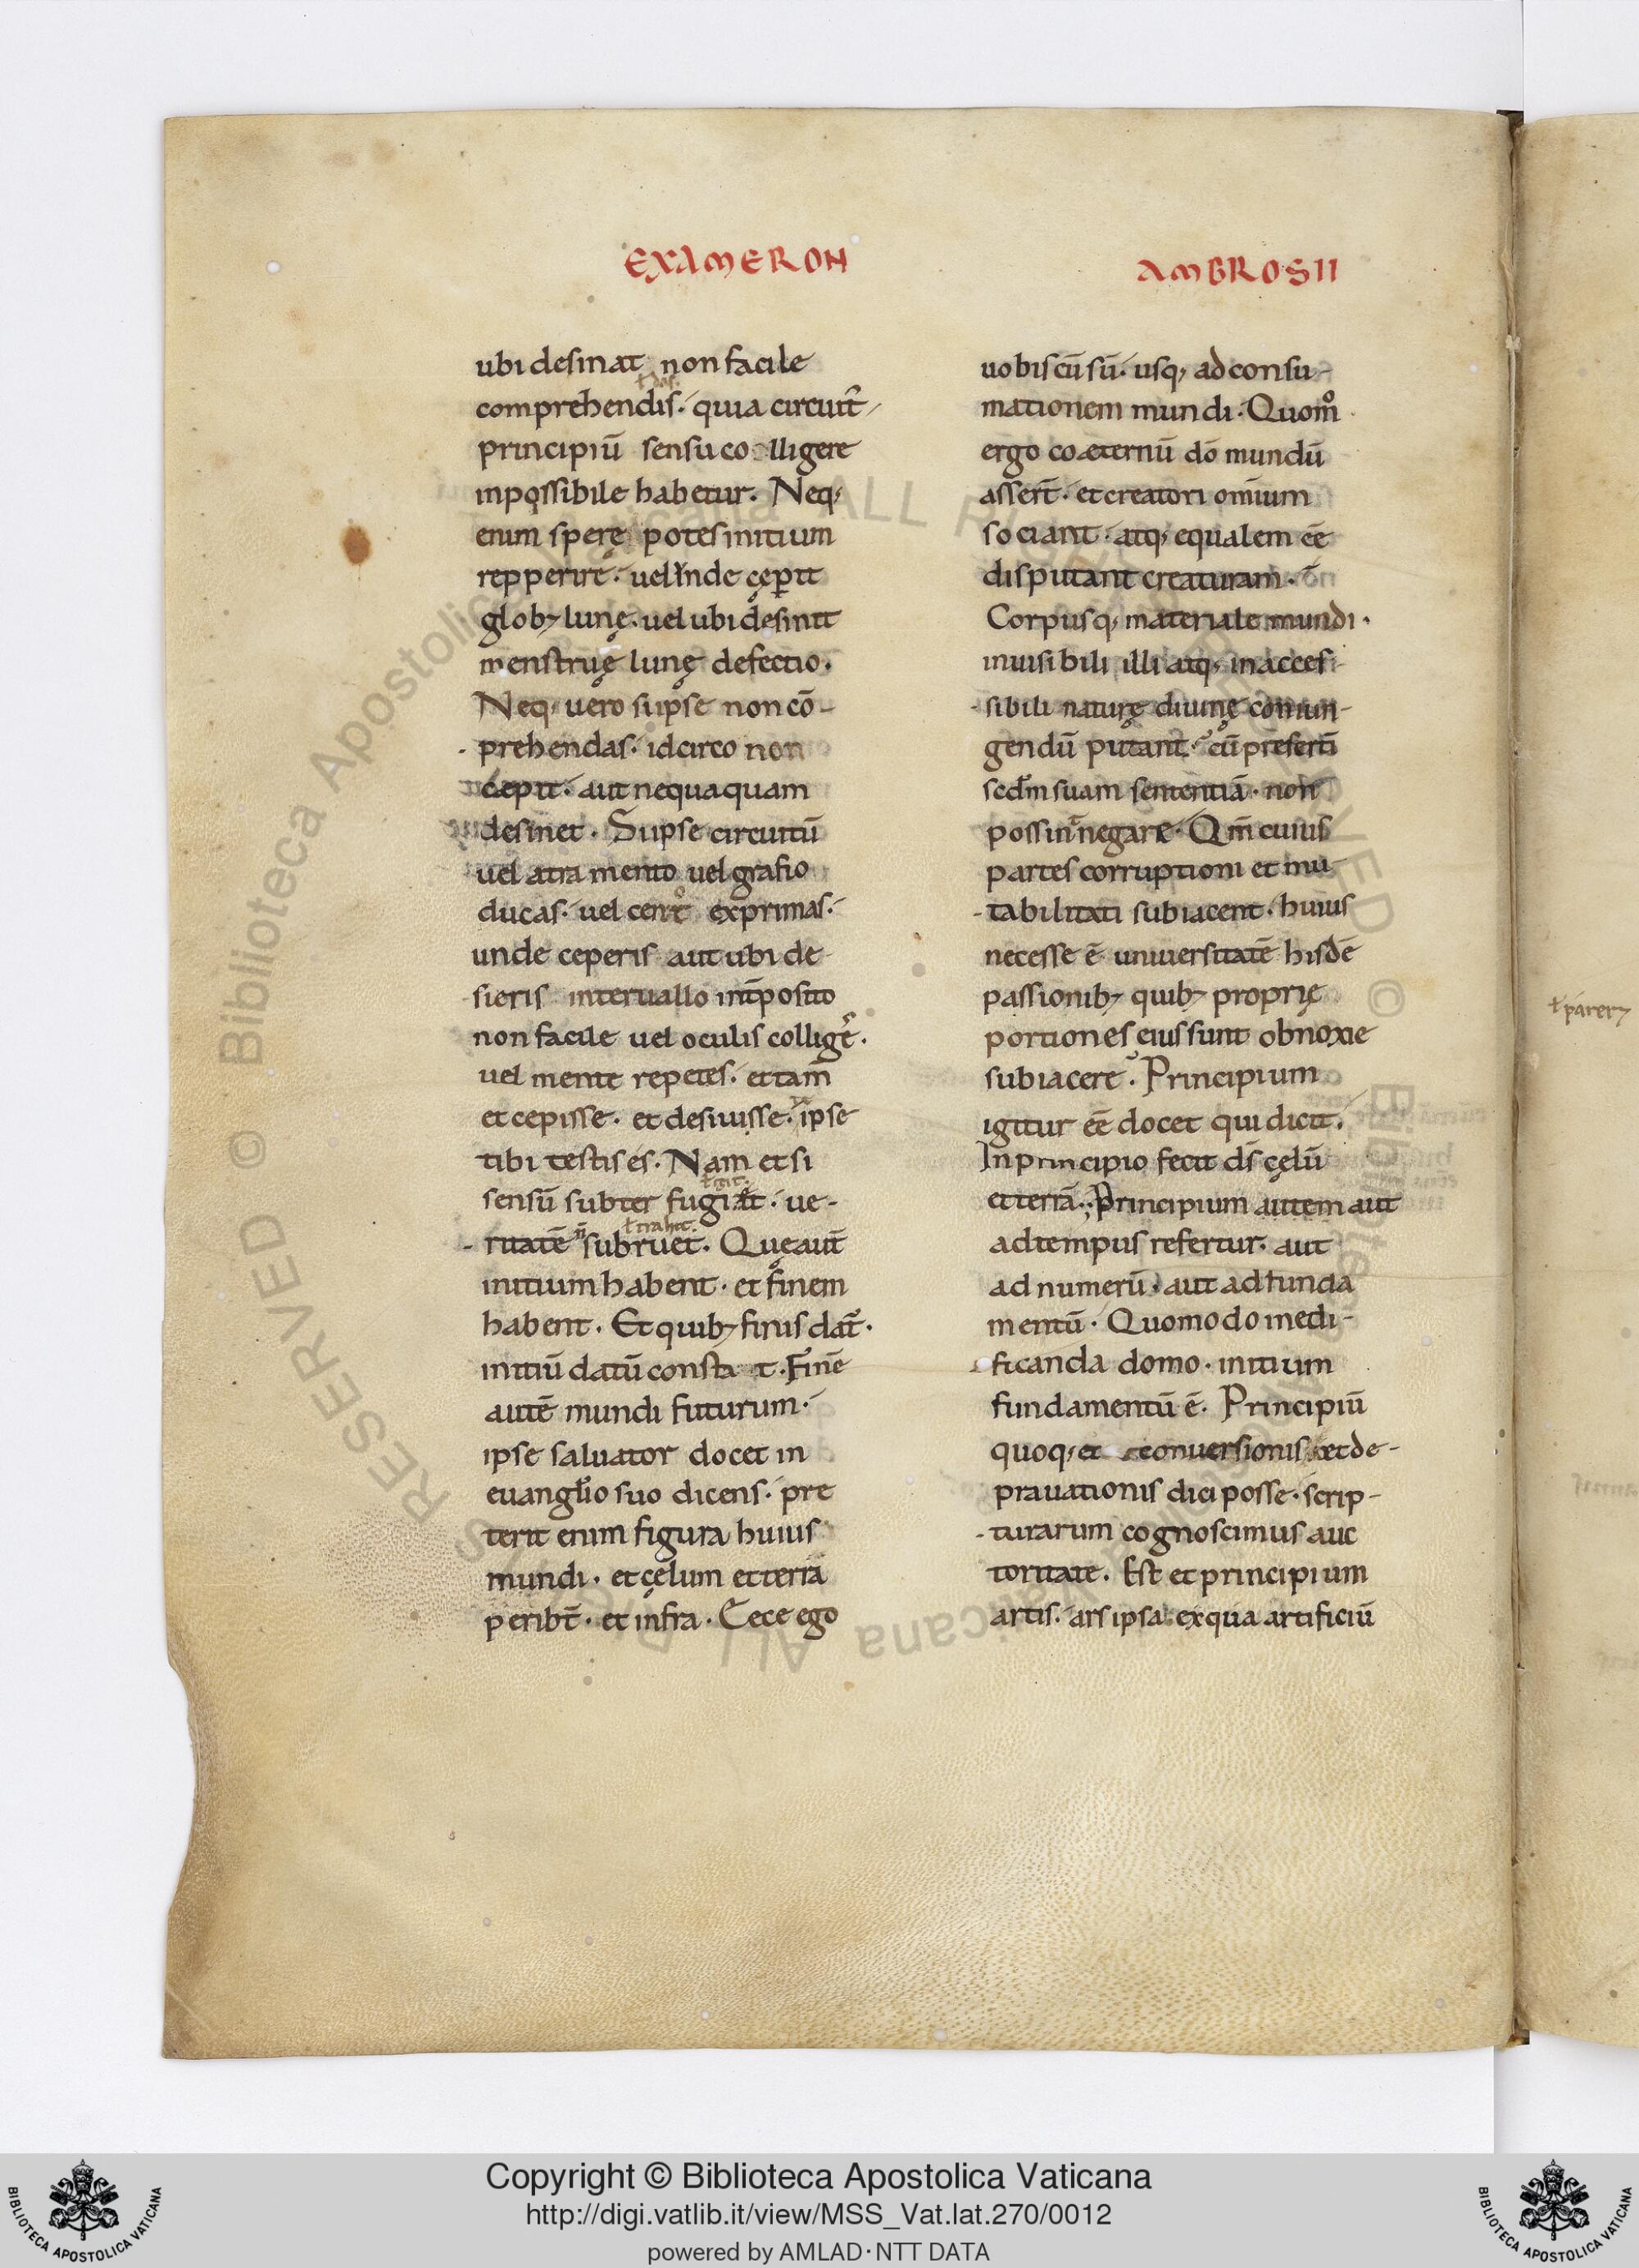 EXAMERON
ubi desinat non facile
ł das.
comprehendis. quia circuit᷑
principiū sensu colligere
inpossibile habetur. Neq;
enim sperę potes initium
repperire. uel unde cępit
glob; lunę. uel ubi desinit
menstruę lunę defectio.
Neq; uero si ipse non cō-
prehendas. idcirco non
cępit. aut nequaquam
desinet. Si ipse circuitū
uel atramento uel grafio
ducas. uel centͦ exprimas.
unde ceperis aut ubi de-
sieris interuallo int̄posito
non facile uel oculis colligē.
uel mente repetes. et tam̄
et cepisse. et desiuisse. ipse
tibi testis es. Nam et si
ł git.
sensū subter fugiat. ue-
ł trahit.
ritatē n̄ subruet. Quę aut̄
initium habent. et finem
habent. Et quib; finis dat᷑.
initiū datū constat. Finē
autē mundi futurum.
ipse saluator docet in
euangłio suo dicens. pre
terit enim figura huius
mundi. et cęlum et terra
peribt̄. et infra. Ecce ego
AMBROSII
uobiscū sū. usq; ad consu-
mationem mundi. Quomͦ
ergo coæternū dō mundū
assert̄. et creatori omīum
sociant. atq; equalem eē
disputant creaturam.
Corpusq; materiale mundi.
inuisibili illi atq; inacces-
sibili naturę diuinę coniun-
gendū putant. cū prefertī
scdm̄ suam sententiā. non
possint negare. Qm̄ cuius
partes corruptioni et mu-
tabilitati subiacent. huius
necesse ē uniuersitatē hisdē
passionib; quib; proprię
portiones eius sunt obnoxie
subiacere. Principium
igitur eē docet qui dicit.
In principio fecit dś cęlū
et terrā. Principium autem aut
ad tempus refertur. aut
ad numerū. aut ad funda
mentū. Quomodo in edi-
ficanda domo. initium
fundamentū ē. Principiū
quoq; et conuersionis et de-
prauationis dici posse. scrip-
turarum cognoscimus auc
toritate. Est et principium
artis. ars ipsa ex qua artificiū
ł parer;
Copyright © Biblioteca Apostolica Vaticana
http://digi.vatlib.it/view/MSS_Vat.lat.270/0012
powered by AMLAD·NTT DATA
BIBLIOTECA APOSTOLICA VATICANA
BIBLIOTECA APOSTOLICA VATICANA